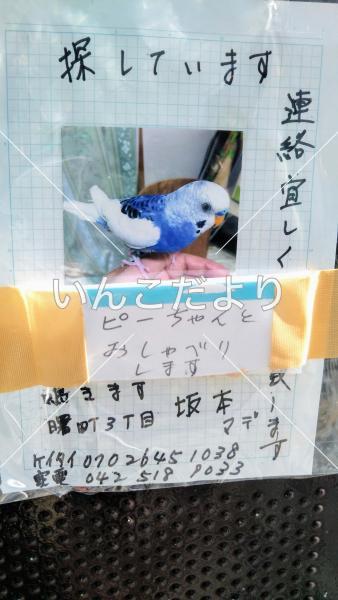 探しています
連絡宜しく
致します
いんこだより
ピーちゃんと
おしゃべり
します
鳴きます
曙町3丁目
坂本
マデ
ケイタイ07026451038
家電 042 518 9033